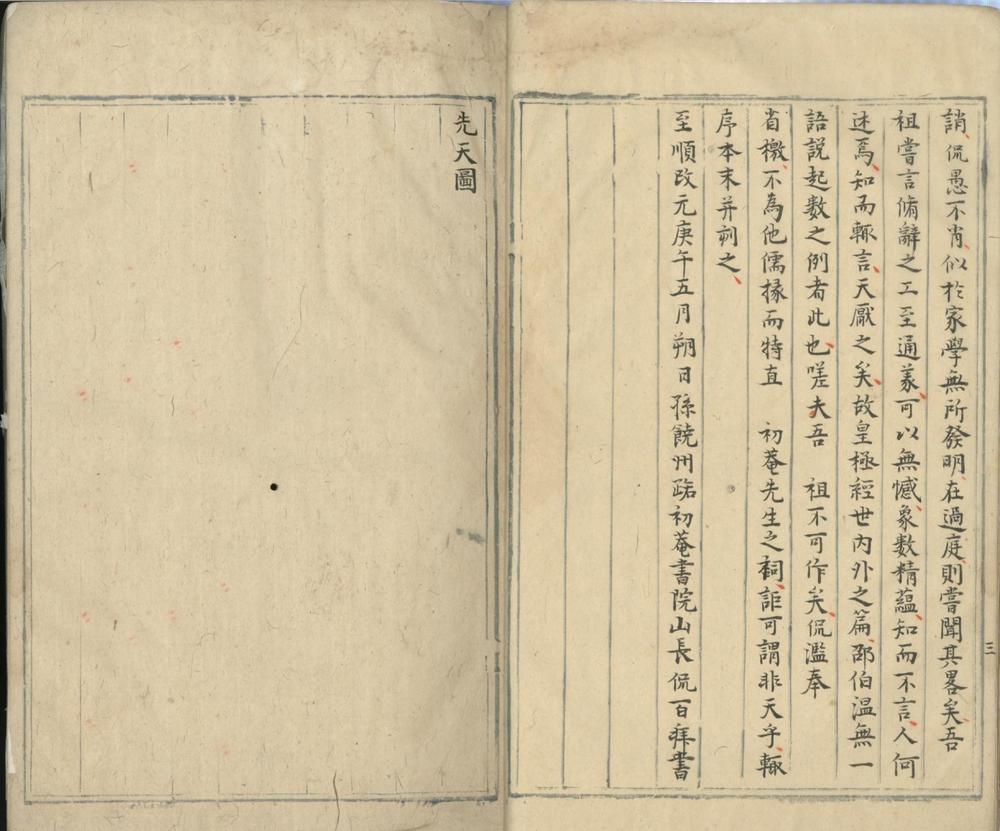 誚侃愚不肖似於家學無所發明在過庭則嘗聞其畧矣吾
祖嘗言脩辭之工至通義可以無憾象數精蘊知而不言人何
述焉知而輙言天厭之矣故皇極經世内外之篇邵伯溫無一
語説起數之例者此也嗟夫吾　祖不可作矣侃濫奉
省檄不為他儒掾而特直　初菴先生之祠詎可謂非天乎輙
序本末并刻之
至順改元庚午五月朔日孫饒州路初菴書院山長侃百拜書
三
先天圖